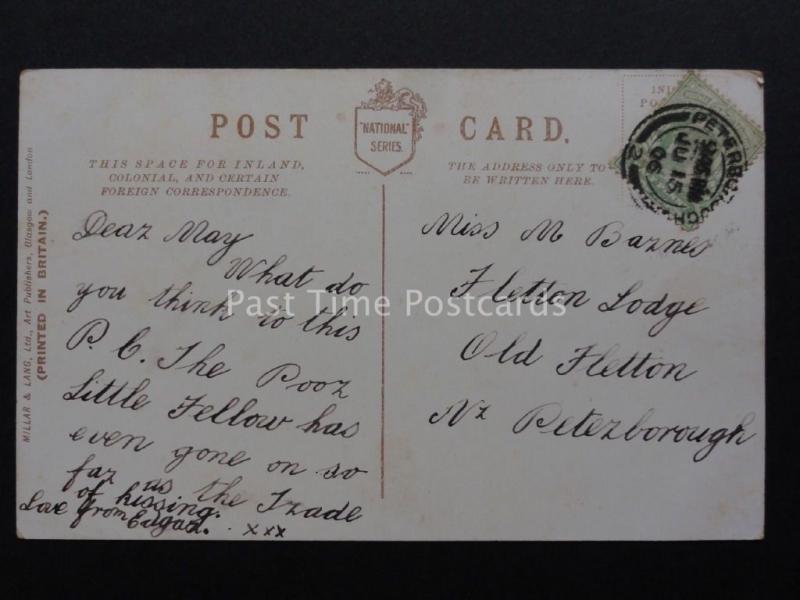 POST CARD.
"NATIONAL" SERIES.
THIS SPACE FOR INLAND,
COLONIAL, AND CERTAIN
FOREIGN CORRESPONDENCE.
THE ADDRESS ONLY TO
BE WRITTEN HERE.
MILLAR & LANG, Ltd., Art Publishers, Glasgow and London
(PRINTED IN BRITAIN.)
Dear May
What do
you think to this
P. C. The Poor
Little Fellow has
even gone on so
far as the Trade
of kissing.
Love from Edgar. xxx
Miss M Barnes
Fletton Lodge
Old Fletton
Nr Peterborough
PETERBOROUGH
JU 15
06
2
Past Time Postcards